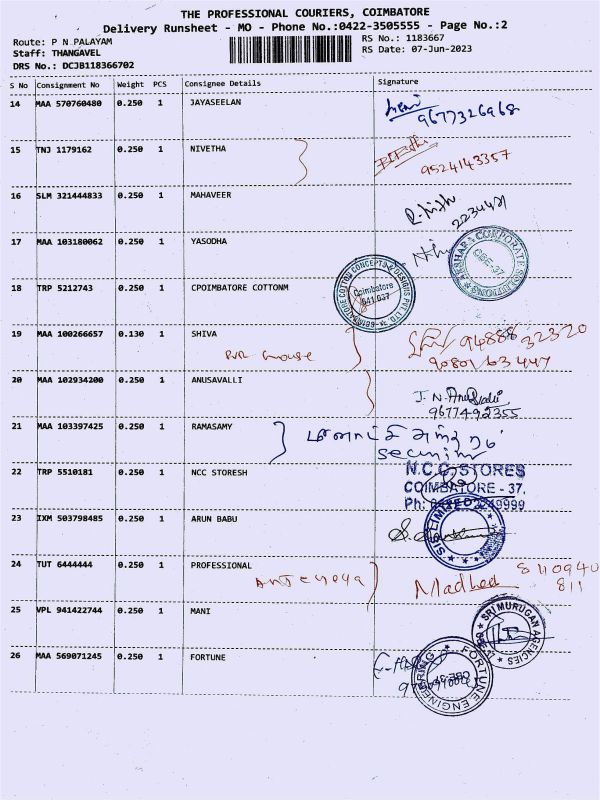 THE PROFESSIONAL COURIERS, COIMBATORE
Delivery Runsheet - MO - Phone No.:0422-3505555 - Page No.:2
Route: P N PALAYAM
RS No.: 1183667
Staff: THANGAVEL
RS Date: 07-Jun-2023
DRS No.: DCJB118366702
S No Consignment No Weight PCS Consignee Details Signature
14 MAA 570760480 0.250 1 JAYASEELAN
9677326968
15 TNJ 1179162 0.250 1 NIVETHA
9524143357
16 SLM 321444833 0.250 1 MAHAVEER
17 MAA 103180062 0.250 1 YASODHA
CORPORATE SOLUTIONS
CBE-37
18 TRP 5212743 0.250 1 CPOIMBATORE COTTONM
COIMBATORE COTTON CONCEPTS & DESIGNS PVT LTD
Coimbatore
641 037
19 MAA 100266657 0.130 1 SHIVA
94888 32320
20 MAA 102934200 0.250 1 ANUSAVALLI
9677492355
21 MAA 103397425 1 RAMASAMY
0.250
22 TRP 5510181 0.250 1 NCC STORESH
N.C.C. STORES
COIMBATORE - 37.
23 IXM 503798485 0.250 1 ARUN BABU
24 TUT 6444444 0.250 1 PROFESSIONAL
25 VPL 941422744 0.250 1 MANI
SRI MURUGAN AGENCIES
26 MAA 569071245 0.250 1 FORTUNE
FORTUNE ENGINEERING